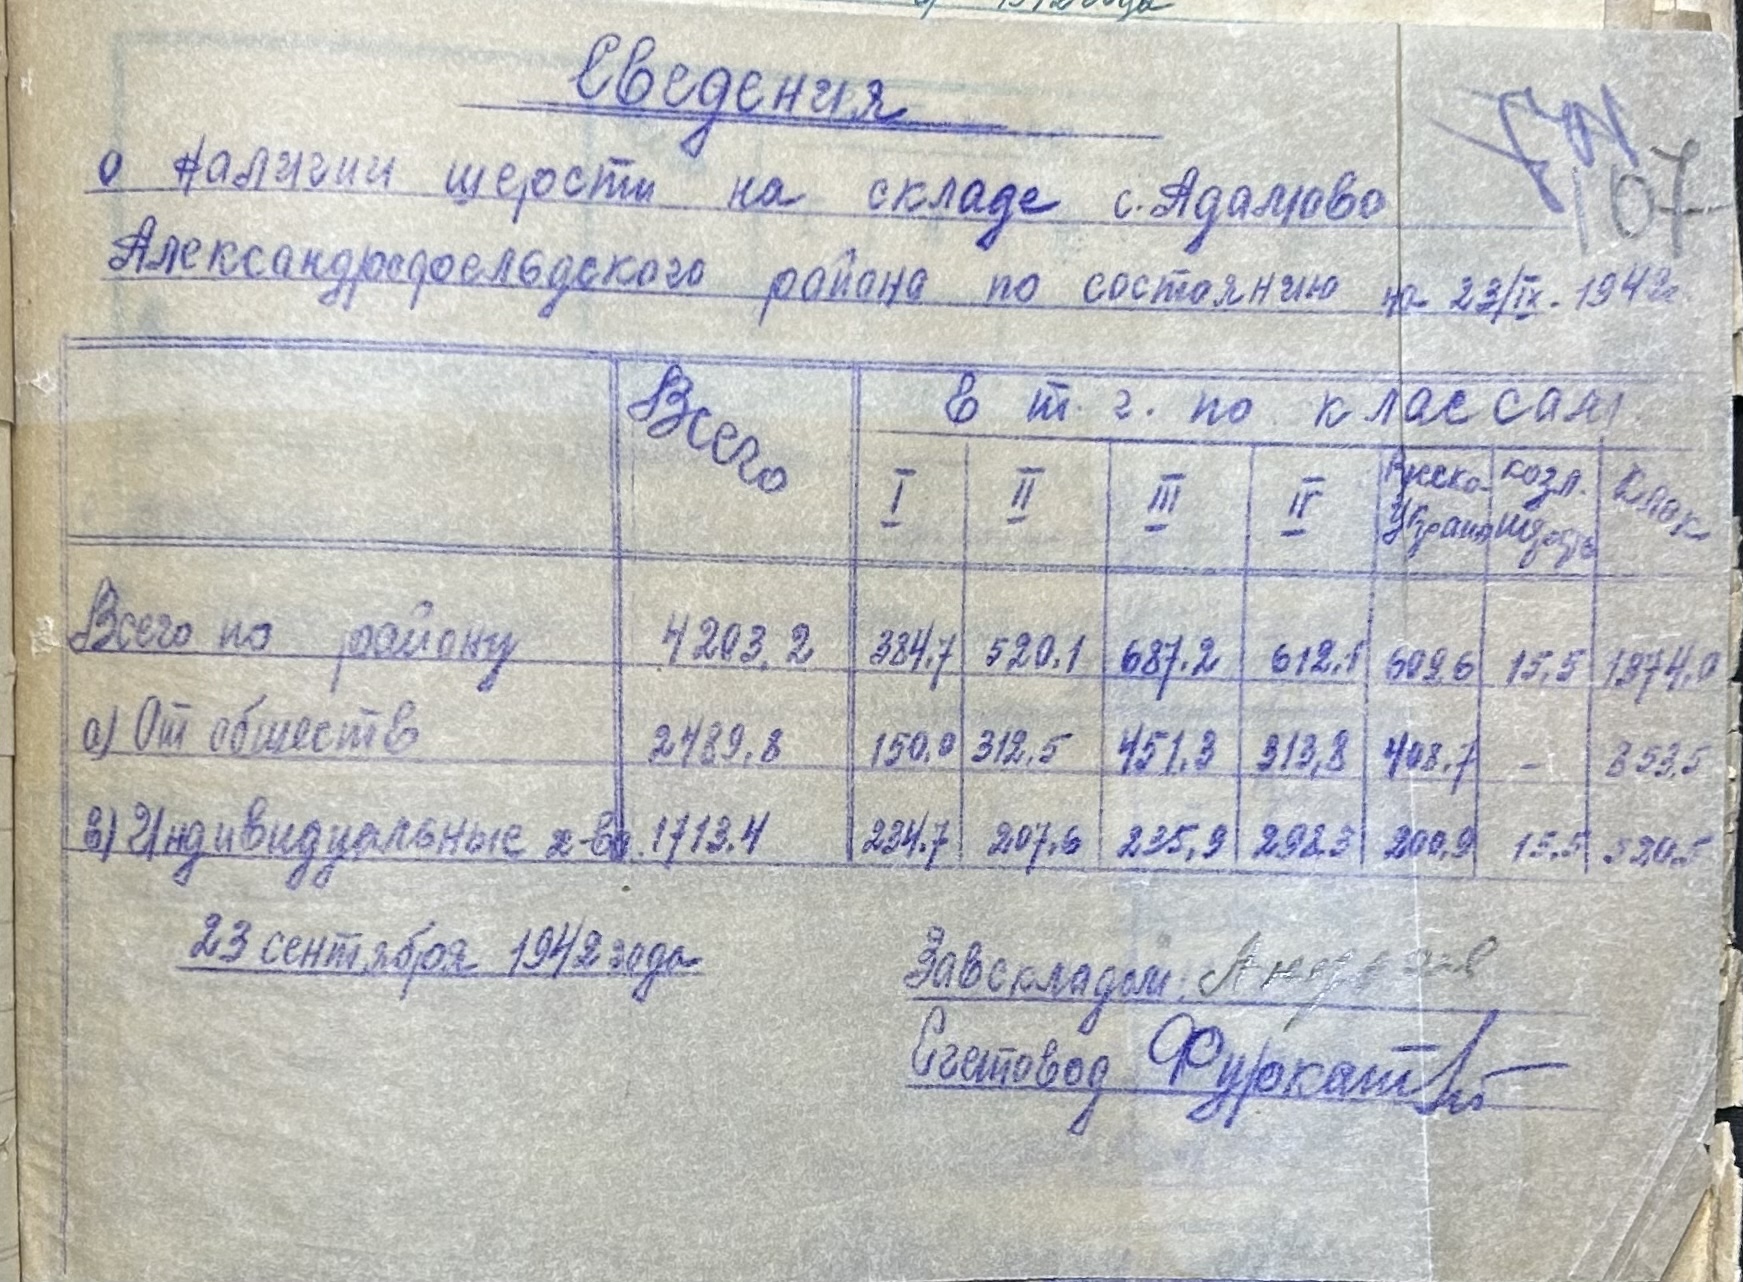 1942 года
Сведения
о наличии шерсти на складе с. Адамово
Александрофельдского района по состоянию на 23/IX. 1942г
107
Всего
в т. г. по классам
I II III IV Русско- козл. Клок
Украин шерсть
Всего по району 4203.2 384.7 520.1 687.2 612.1 609.6 15.5 1374.0
а) От обществ 2489.8 150.0 312.5 451.3 313,8 408.7 - 853.5
в) Индивидуальные х-ва 1713.4 234.7 207.6 235,9 298.3 200.9 15.5 520.5
23 сентября 1942 года
Завскладом:
Счетовод Фуркат